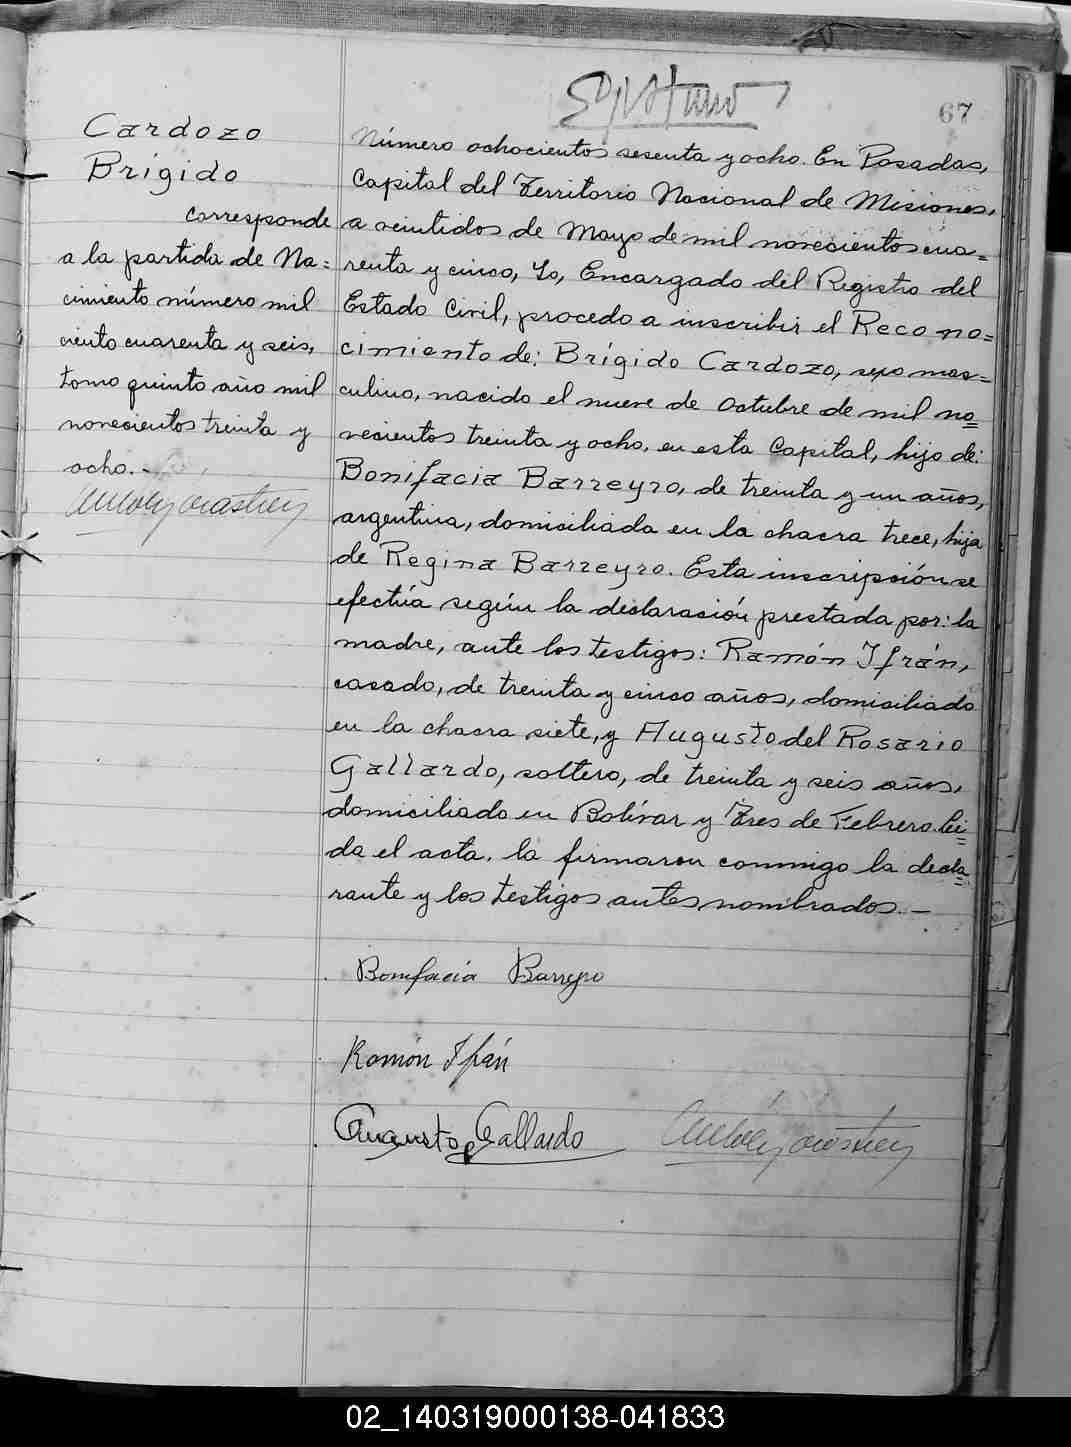 67
Cardozo
Brígido
corresponde
a la partida de Na=
cimiento número mil
ciento cuarenta y seis,
tomo quinto año mil
novecientos treinta y
ocho.-
Número ochocientos sesenta y ocho. En Posadas,
Capital del Territorio Nacional de Misiones,
a veintidos de Mayo de mil novecientos cua=
renta y cinco, Yo, Encargado del Registro del
Estado Civil, procedo a inscribir el Recono=
cimiento de: Brígido Cardozo, sexo mas=
culino, nacido el nueve de Octubre de mil no=
vecientos treinta y ocho, en esta Capital, hijo de:
Bonifacia Barreyro, de treinta y un años,
argentina, domiciliada en la chacra trece, hija
de Regina Barreyro. Esta inscripción se
efectúa según la declaración prestada por: la
madre, ante los testigos: Ramón Ifrán,
casado, de treinta y cinco años, domiciliado
en la chacra siete, y Augusto del Rosario
Gallardo, soltero, de treinta y seis años,
domiciliado en Bolívar y Tres de Febrero. Leí=
da el acta, la firmaron conmigo la decla=
rante y los testigos antes nombrados.-
Bonifacia Barreyro
Ramón Ifrán
Augusto Gallardo
02_140319000138-041833